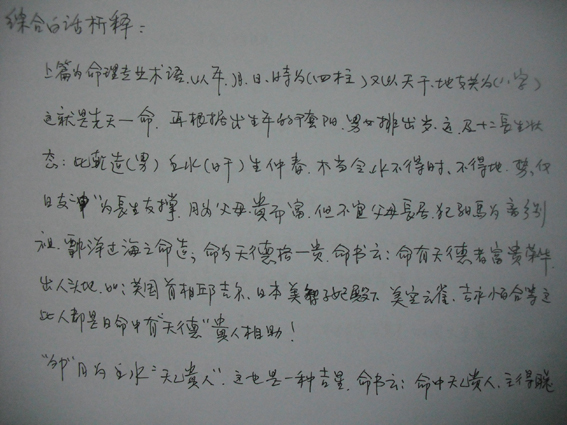 综合白话析释：
上篇为命理专业术语，以年、月、日、时为(四柱)又以天干、地支共为(八字)
这就是先天一命，再根据出生年的阴阳、男女排出岁、运、及十二長生状
态：比乾造(男)壬水(日干)生仲春，木当令水不得時、不得地、势，仅
日支"申"为長生支撑，月为父母貴而富，但不宜父母長居，犯驲馬为离别
祖、飄洋过海之命造，命为天德格一贵，命书云：命有天德者富贵荣华
出人头地，如：英国首相邱吉尔、日本美智子妃殿下、美空云雀、吉永小百合等这
些人都是日命中有"天德"貴人相助！
"卯"月为壬水"天乙貴人"，这也是一种吉星，命书云：命中天乙貴人，主得